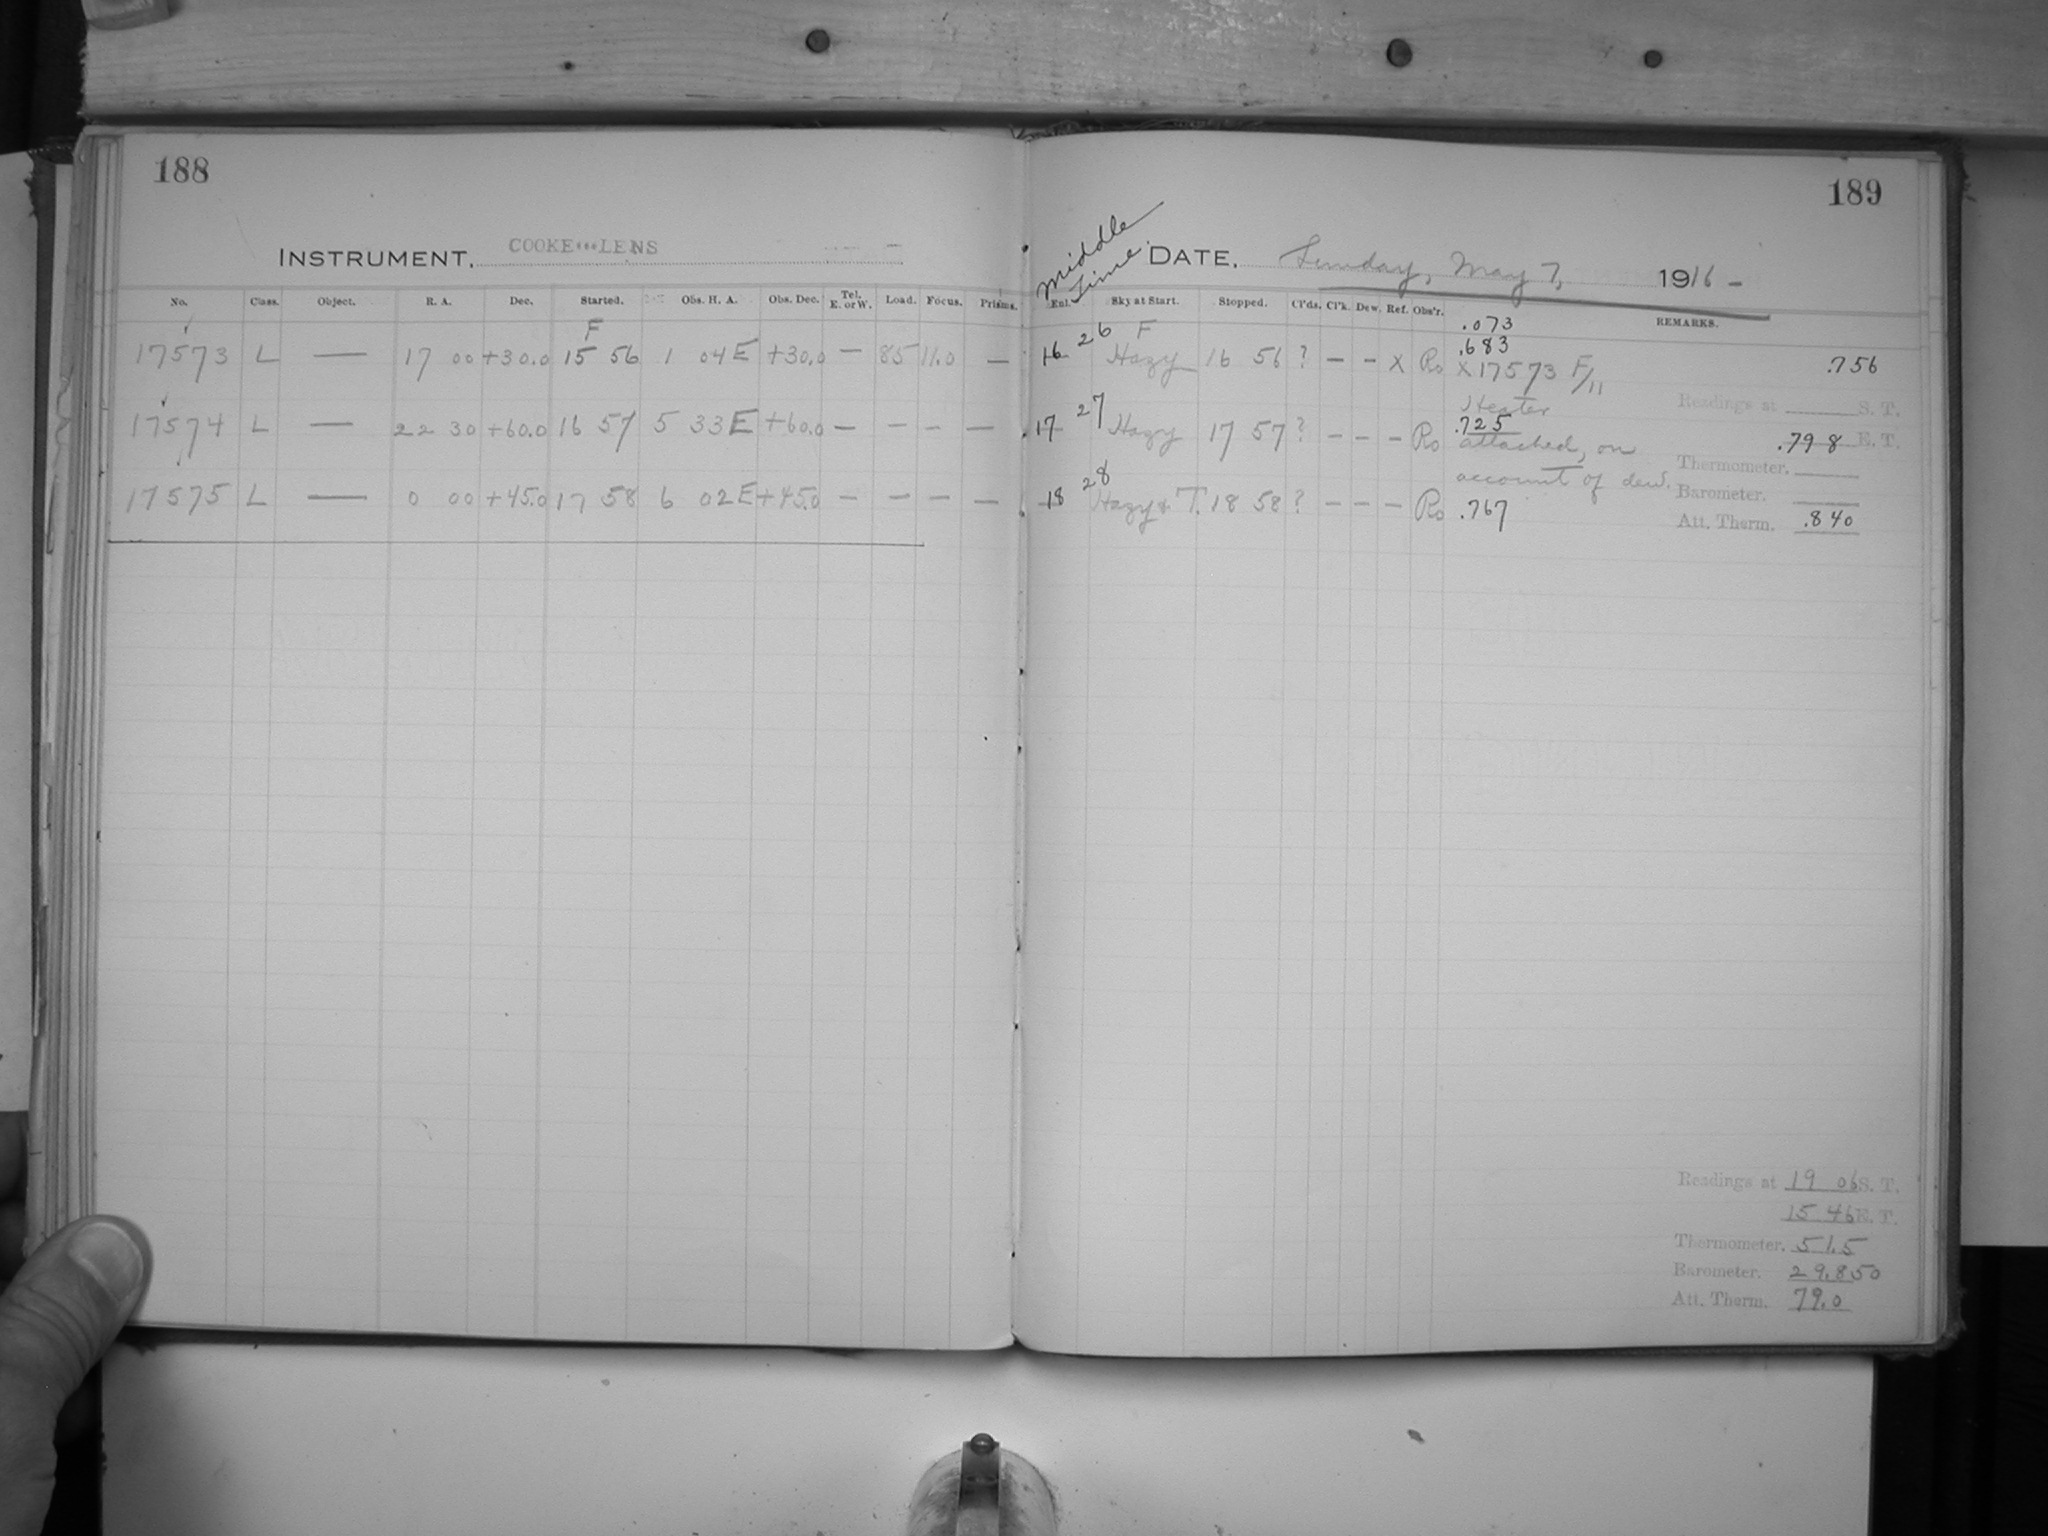 188
INSTRUMENT, COOKE LENS
No. Class. Object. R. A. Dec. Started. Obs. H. A. Obs. Dec. Tel. E. or W. Load. Focus. Prisms.
F
17573 L — 17 00 +30.0 15 56 1 04 E +30.0 — 85 11.0 —
17574 L — 22 30 +60.0 16 57 5 33 E +60.0 — — — —
17575 L — 0 00 +45.0 17 58 6 02 E +45.0 — — — —
189
Middle Time.
DATE, Sunday, May 7, 1916 -
Enl. Sky at Start. Stopped. Cl'ds. Cl'k. Dew. Ref. Obs'r. REMARKS.
.073
F
16 26 Hazy 16 56 ? — — X Ro .683 .756
X 17573 F/11
Heater
Readings at S. T.
17 27 Hazy 17 57 ? — — — Ro .725 .798 E. T.
attached, on
Thermometer.
account of dew.
Barometer.
18 28 Hazy & T. 18 58 ? — — — Ro .767
Att. Therm. .840
Readings at 19 06 S. T.
15 46 E. T.
Thermometer. 51.5
Barometer. 29.850
Att. Therm. 79.0